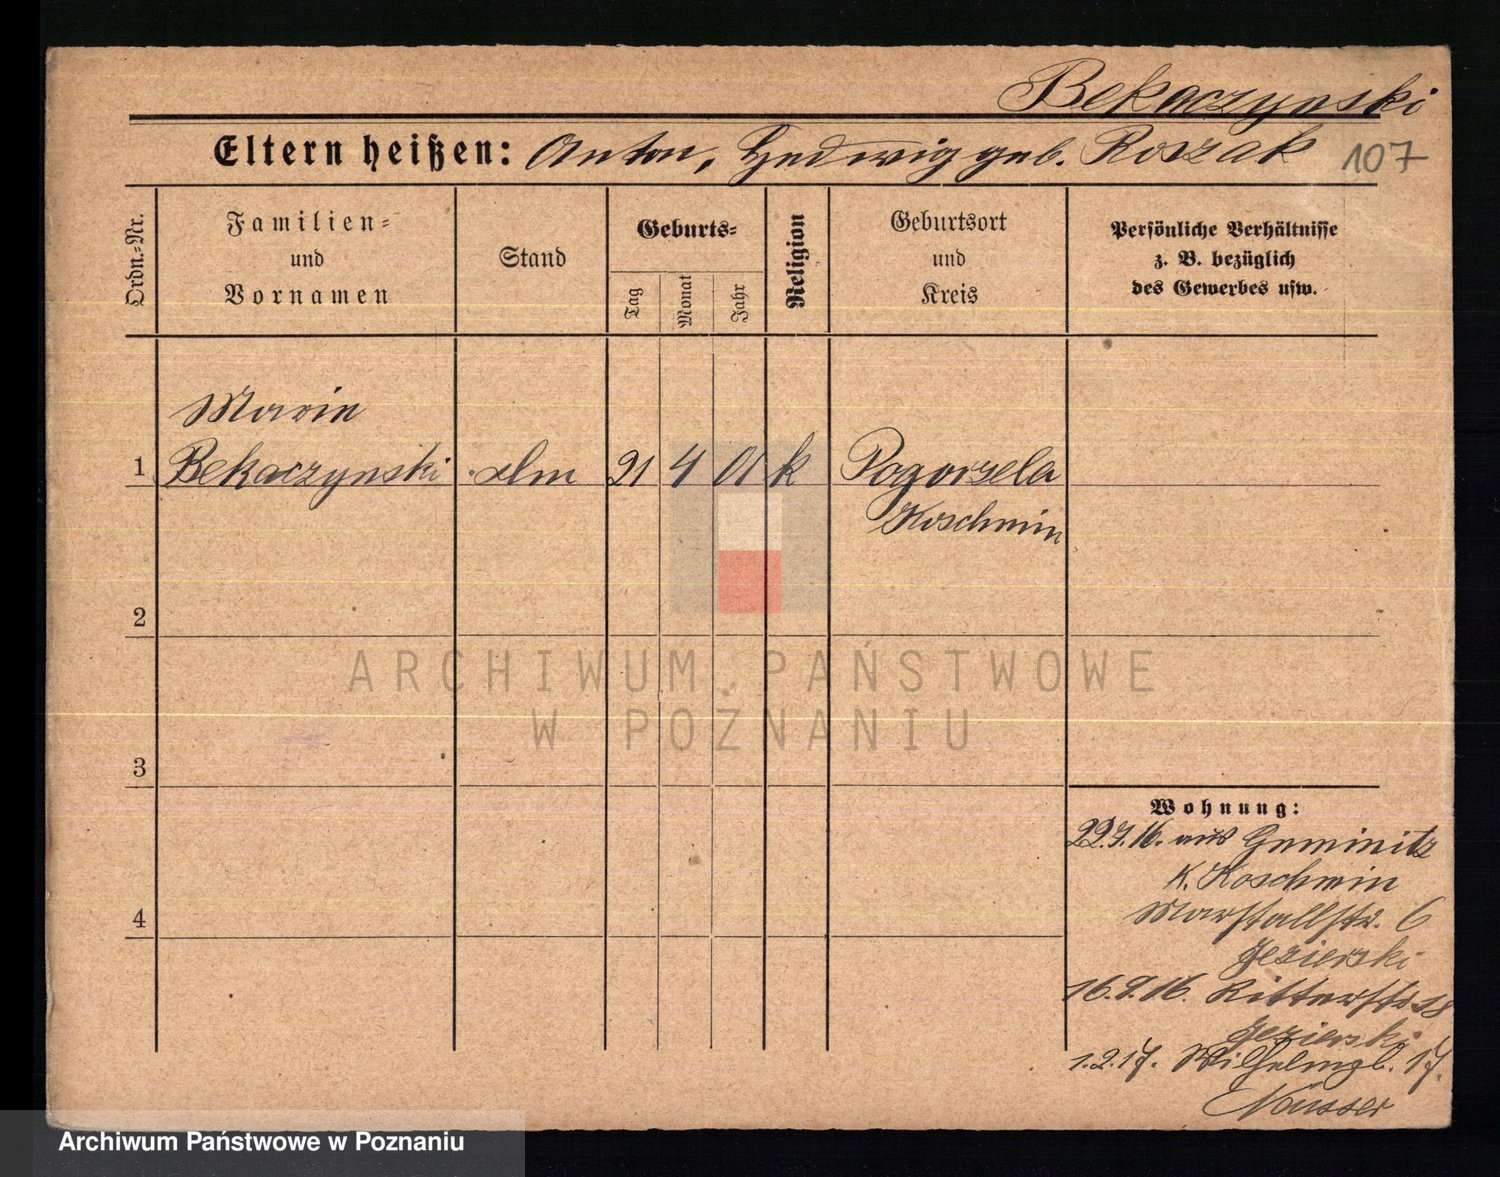 Bekaczynski
Eltern heißen: Anton, Hedwig geb. Roszak 107
Ordn.-Nr.
Familien-
und
Vornamen
Stand
Geburts-
Tag
Monat
Jahr
Religion
Geburtsort
und
Kreis
Persönliche Verhältnisse
z. B. bezüglich
des Gewerbes usw.
Marie
1 Bekaczynski 21 4 01 k Pogorzela
Koschmin
2
ARCHIWUM PAŃSTWOWE
W POZNANIU
3
Wohnung:
22.7.16. aus
K. Koschmin
4
Marstallstr. 6
Jezierski
16.9.16. Ritterstr. 18
Jezierski
1.2.17. Wilhelmpl. 17.
Archiwum Państwowe w Poznaniu